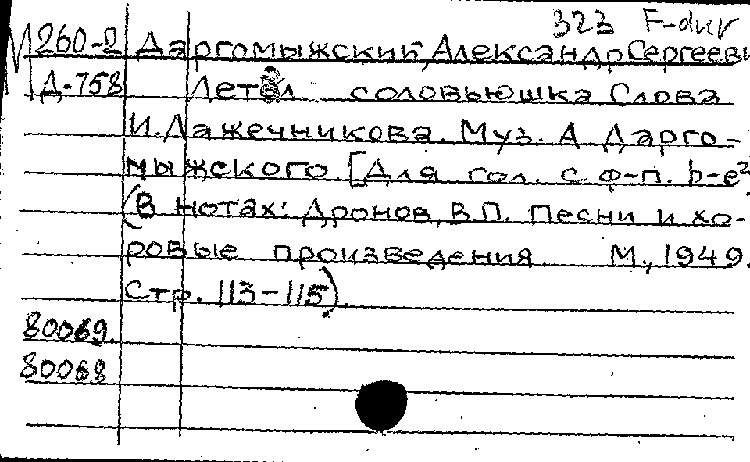 323 F-dur
М260-2 Даргомыжский, Александр Сергееви
Д-758 Летел соловьюшка Слова
И. Лажечникова. Муз. А Дарго-
мыжского. [Для гол. с ф-п. b-e²
(В нотах: Дронов, В.П. Песни и хо-
ровые произведения М., 1949.
Стр. 113-115).
80069.
80068